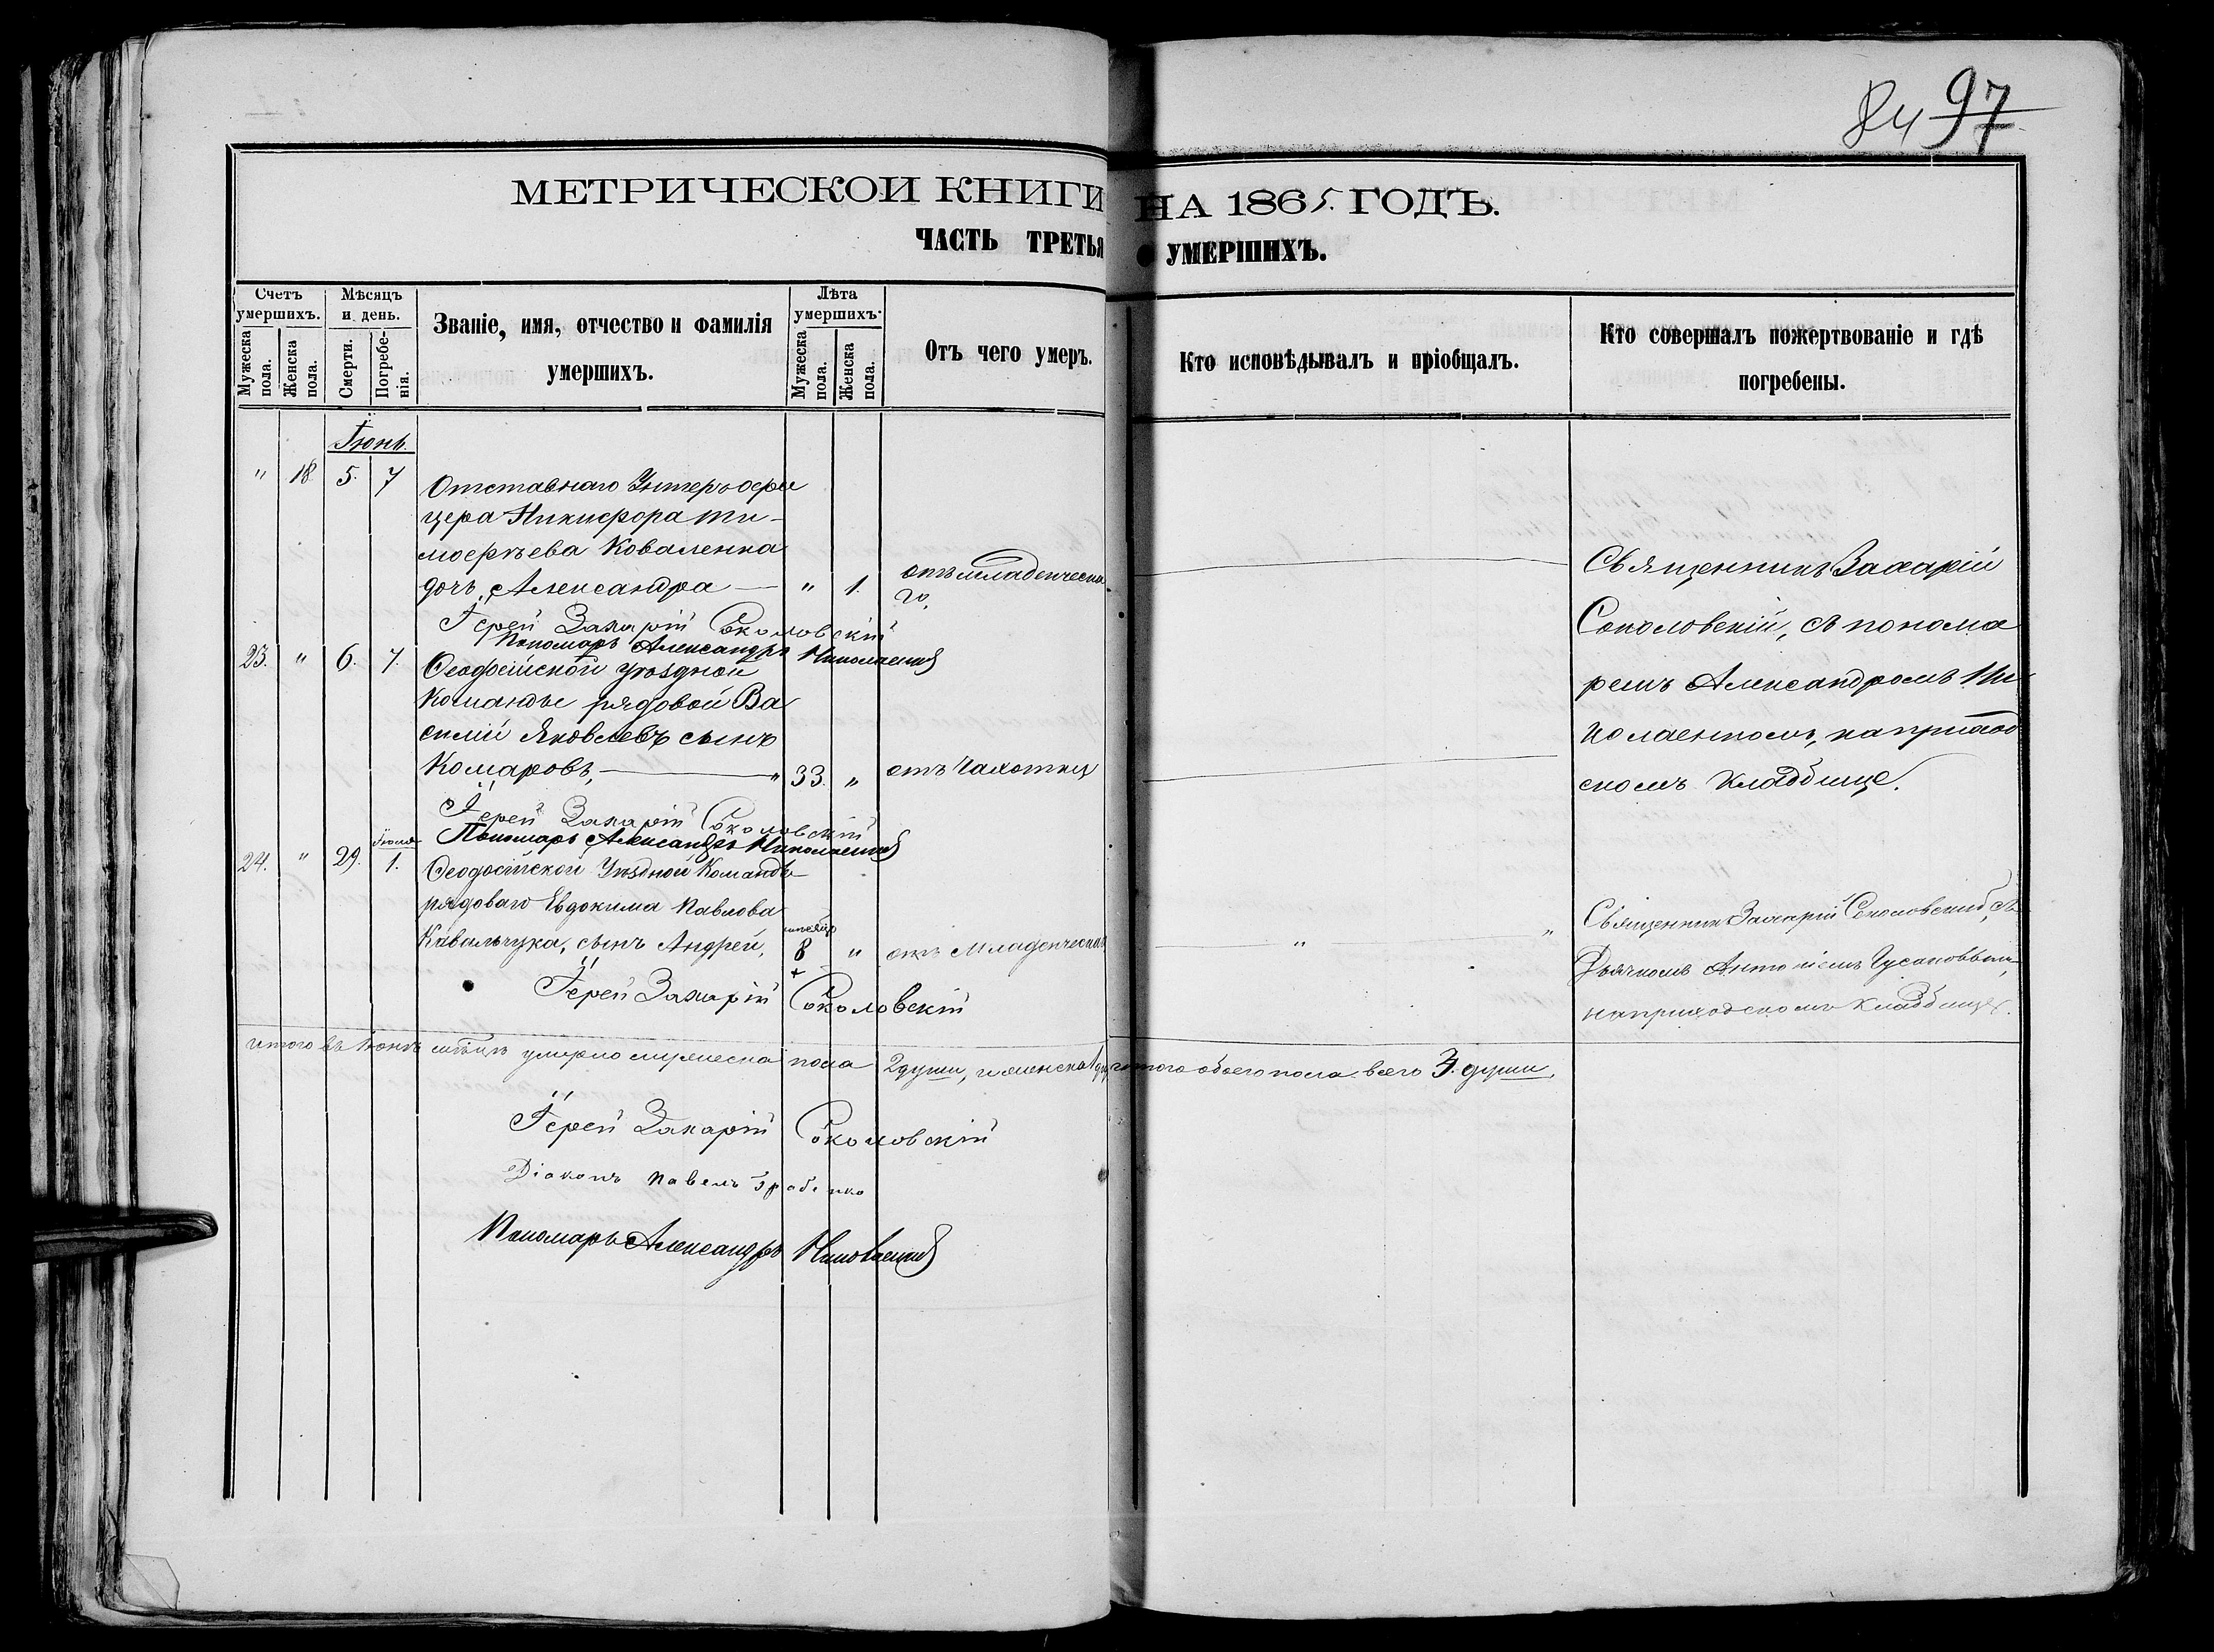 84 97
МЕТРИЧЕСКОЙ КНИГИ НА 1865. ГОДЪ.
ЧАСТЬ ТРЕТЬЯ О УМЕРШИХЪ.
Счетъ умершихъ.
Мужеска пола.
Женска пола.
Мѣсяцъ и день.
Смерти.
Погребенія.
Званіе, имя, отчество и фамилія
умершихъ.
Лѣта умершихъ.
Мужеска пола.
Женска пола.
Отъ чего умеръ.
Кто исповѣдывалъ и пріобщалъ.
Кто совершалъ пожертвованіе и гдѣ
погребены.
Іюнь.
" 18. 5. 7 Отставнаго Унтеръ офи
цера Никифора Ти-
мофеева Коваленка
дочь, Александра — " 1. отъ младенческа
го.
Іерей Захарій Соколовскій
Пономарь Александръ Николаенко
23. " 6. 7. Ѳеодосійской уѣздной
Командѣ рядовой Ва
силій Яковлевъ сынъ
Комаровъ, — 33. " отъ Чахотки
Священникъ Захарій
Соколовскій, съ понома
ремъ Александромъ Ни
колаенкомъ, на приход
скомъ кладбище.
Іерей Захарій Соколовскій
Пономарь Александръ Николаенко
24. " 29. Іюля 1. Ѳеодосійской Уѣздной Командѣ
рядоваго Евдокима Павлова
Кавальчука, сынъ Андрей, 8 " отъ Младенческа
Священникъ Захарій Соколовскій, съ
Дьячкомъ
на приходскомъ кладбище.
Іерей Захарій Соколовскій
итого въ Іюнѣ мѣсяцѣ умерло мужеска пола 2 души, и женска 1 итого обоего пола всего 3. души.
Іерей Захарій Соколовскій
Діаконъ Павелъ
Пономарь Александръ Николаенко